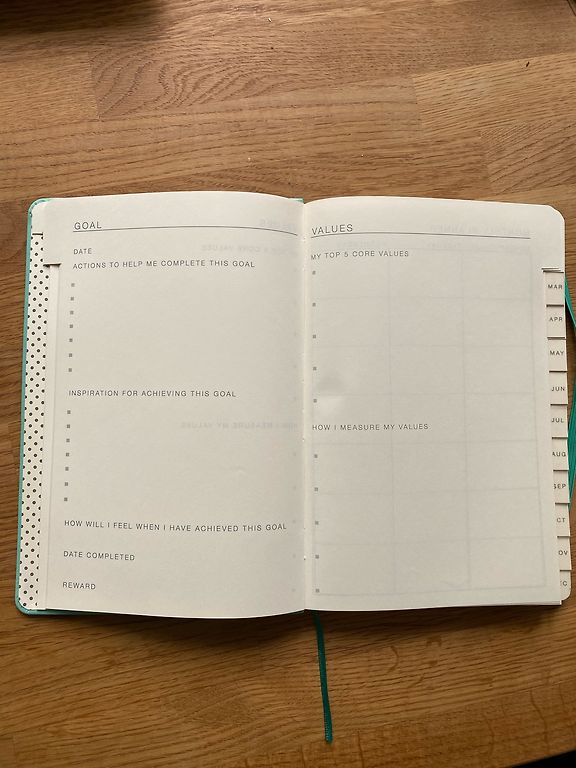 GOAL
DATE
ACTIONS TO HELP ME COMPLETE THIS GOAL
INSPIRATION FOR ACHIEVING THIS GOAL
HOW WILL I FEEL WHEN I HAVE ACHIEVED THIS GOAL
DATE COMPLETED
REWARD
VALUES
MY TOP 5 CORE VALUES
HOW I MEASURE MY VALUES
MAR
APR
MAY
JUN
JUL
AUG
SEP
CT
OV
C